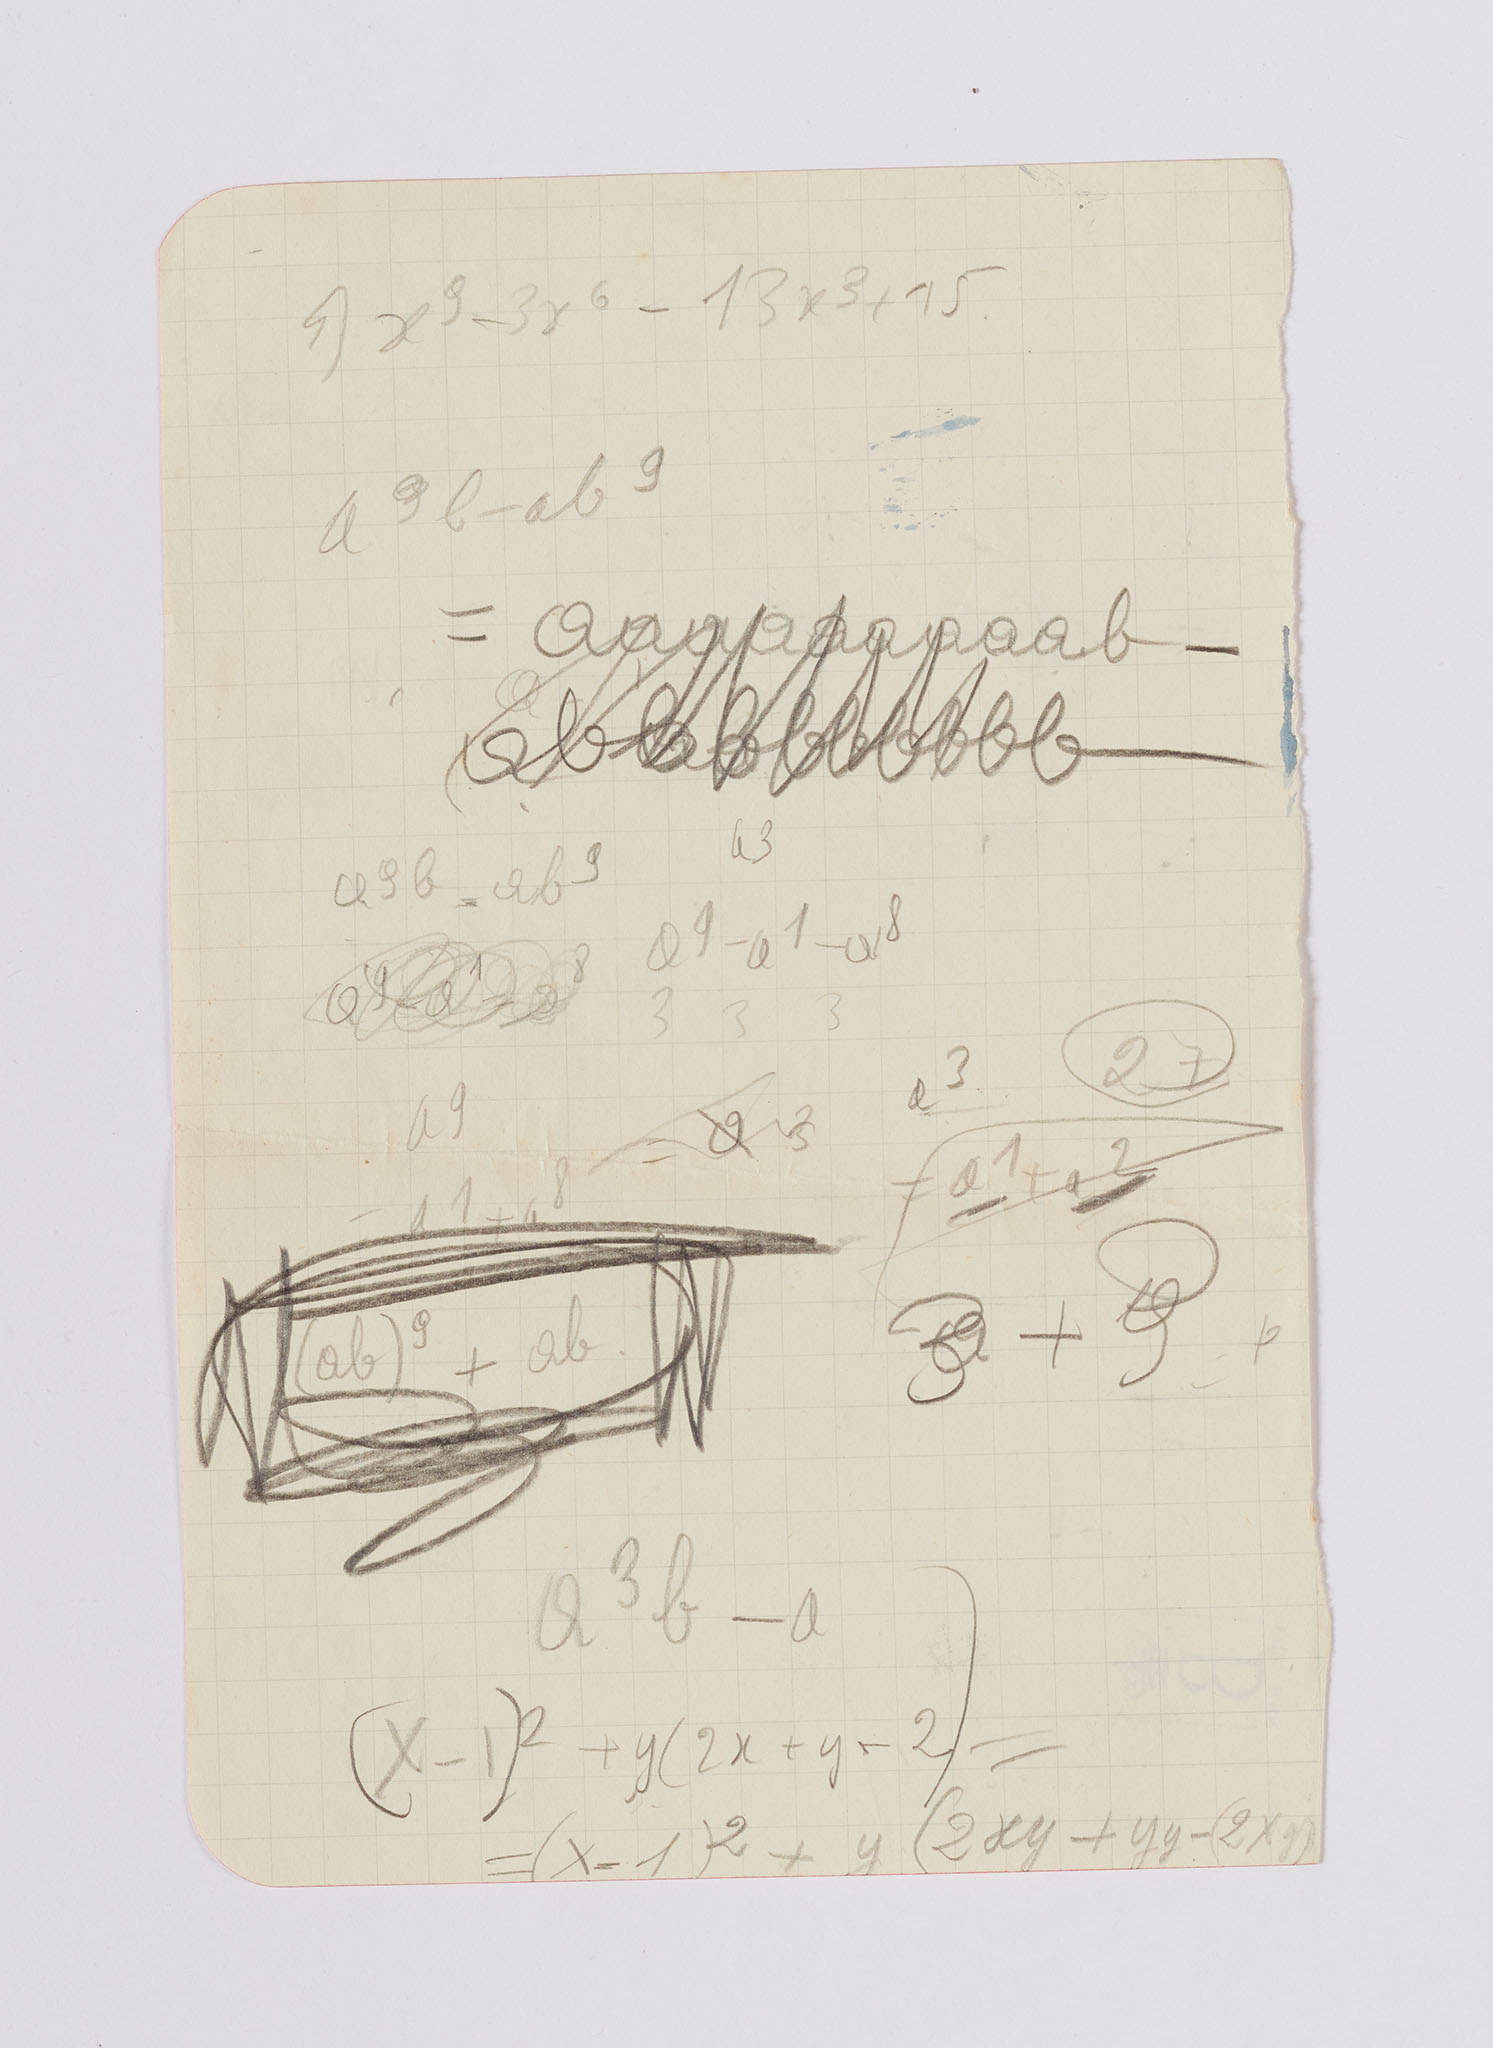 9) x⁹ - 3x⁶ - 13x³ + 15.
a⁹b - ab⁹
= aaaaaaaaab -
abbbbbbbbb
a3
a⁹b = ab⁹
a⁹ - a¹ - a⁸
a⁹ - a¹ - a⁸
3 3 3
a³ 27
a⁹ = a 3
= a¹ + a²
= a¹ + a⁸
(ab)⁹ + ab.
+ 9
a³b - a
(x-1)² + y(2x + y - 2) =
= (x-1)² + y (2xy + yy - (2xy)